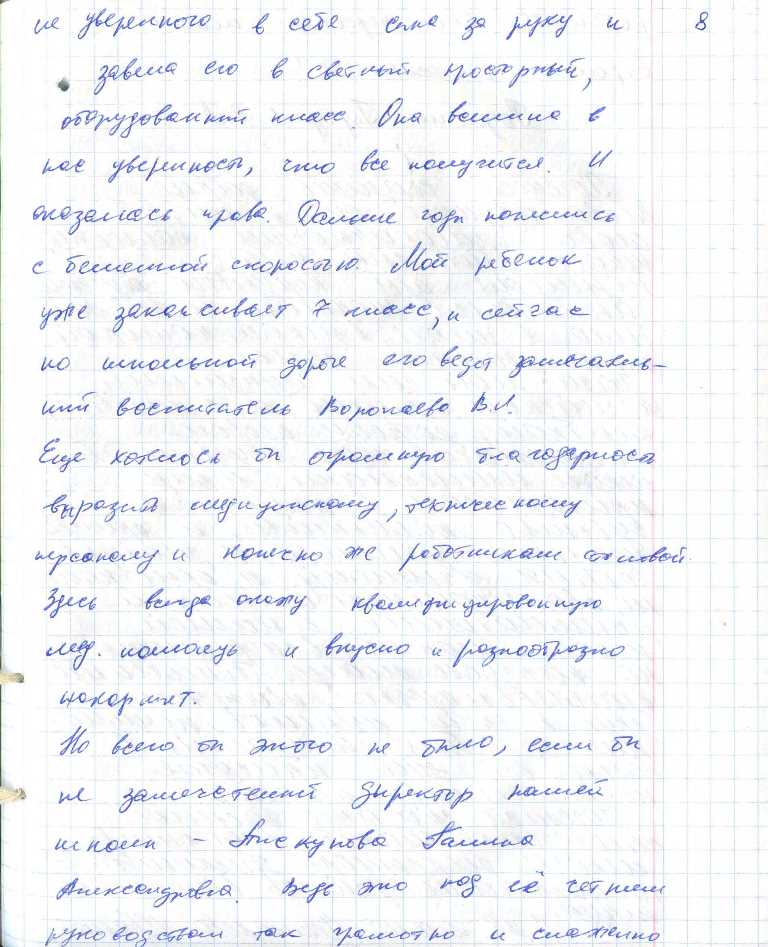 не уверенного в себе сына за руку и 8
завела его в светлый просторный,
оборудованный класс. Она вселила в
нас уверенность, что все получится. И
оказалась права. Дальше годы понеслись
с бешенной скоростью. Мой ребенок
уже заканчивает 7 класс, и сейчас
по школьной дороге его ведет замечатель-
ный воспитатель Воропаева В.И.
Еще хотелось бы огромную благодарность
выразить медицинскому, техническому
персоналу и конечно же работникам столовой.
Здесь всегда окажут квалифицированную
мед. помощь и вкусно и разнообразно
накормят.
Но всего бы этого не было, если бы
не замечательный директор нашей
школы – Пискунова Галина
Александровна. Ведь это под её четким
руководством так грамотно и слаженно